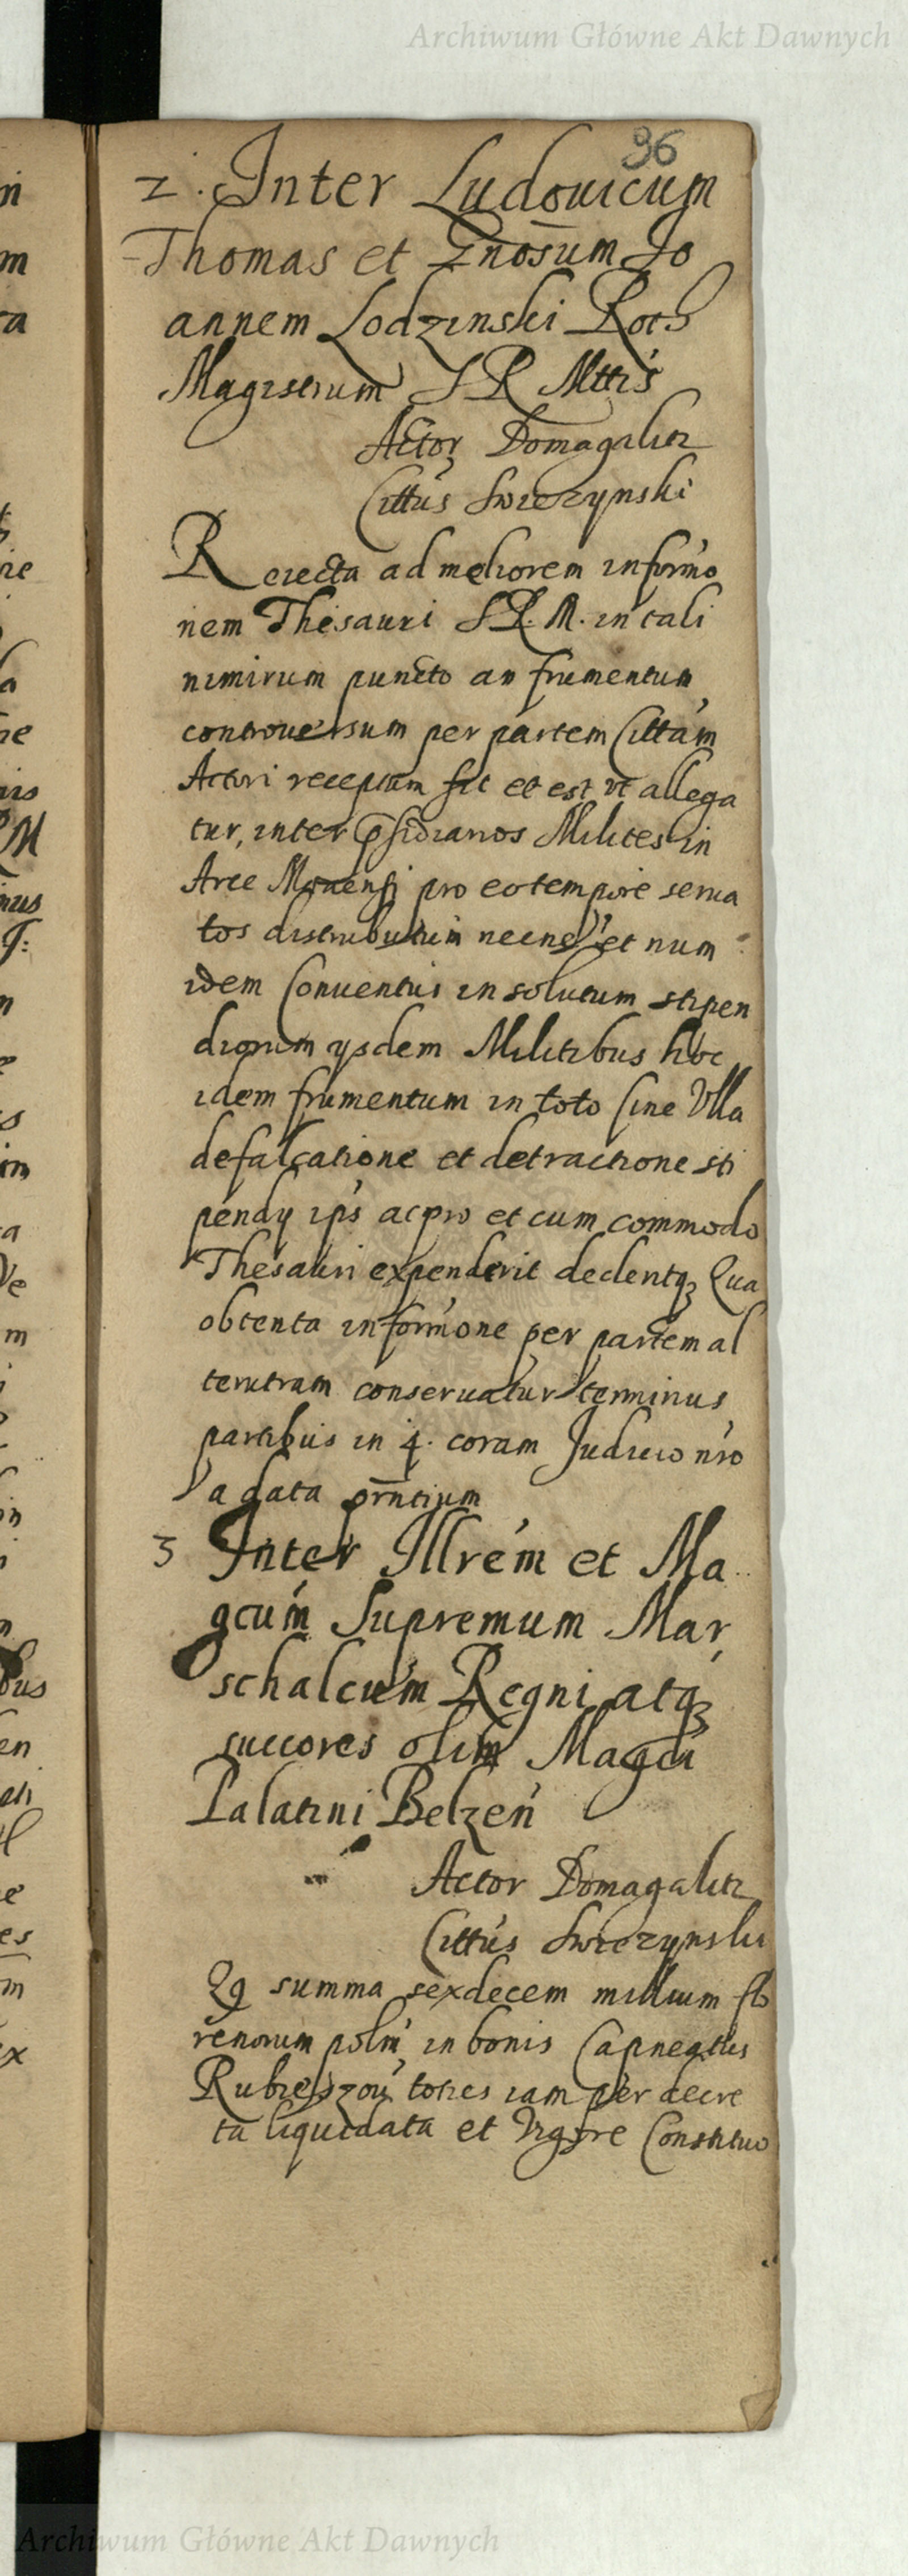 Archiwum Główne Akt Dawnych
96
2. Inter Ludouicum
Thomas et Gnosum Jo
annem Lodzinski Roth
Magistrum S R Mttis
Actor Domagalicz
Cittus Swierzynski
Reiecta ad meliorem informo
nem Thesauri S R. M. in tali
nimirum puncto an frumentum
controuersum per partem Cittam
Actori receptum sit et est vt allega
tur, inter psidiarios Milites in
Arce pro eo tempore serua
tos distributum necne et num
idem Conuentus in solutum stipen
diorum ysdem Militibus hoc
idem frumentum in toto sine Vlla
defalcatione et detractione sti
pendy ips ac pro et cum commodo
Thesauri expenderit declentq Qua
obtenta informone per partem al
terutram conseruatur terminus
partibus in 4. coram Judicio nro
a data prntium
3 Inter Illrem et Ma
gcum Supremum Mar
schalcum Regni atq
succores olim Magci
Palatini Belzen
Actor Domagalicz
Cittus Swierzynski
Qq summa sexdecem millium flo
renorum poln in bonis Capneatus
Rubieszou toties iam per decre
ta liquidata et Vigore Constituo
Archiwum Główne Akt Dawnych